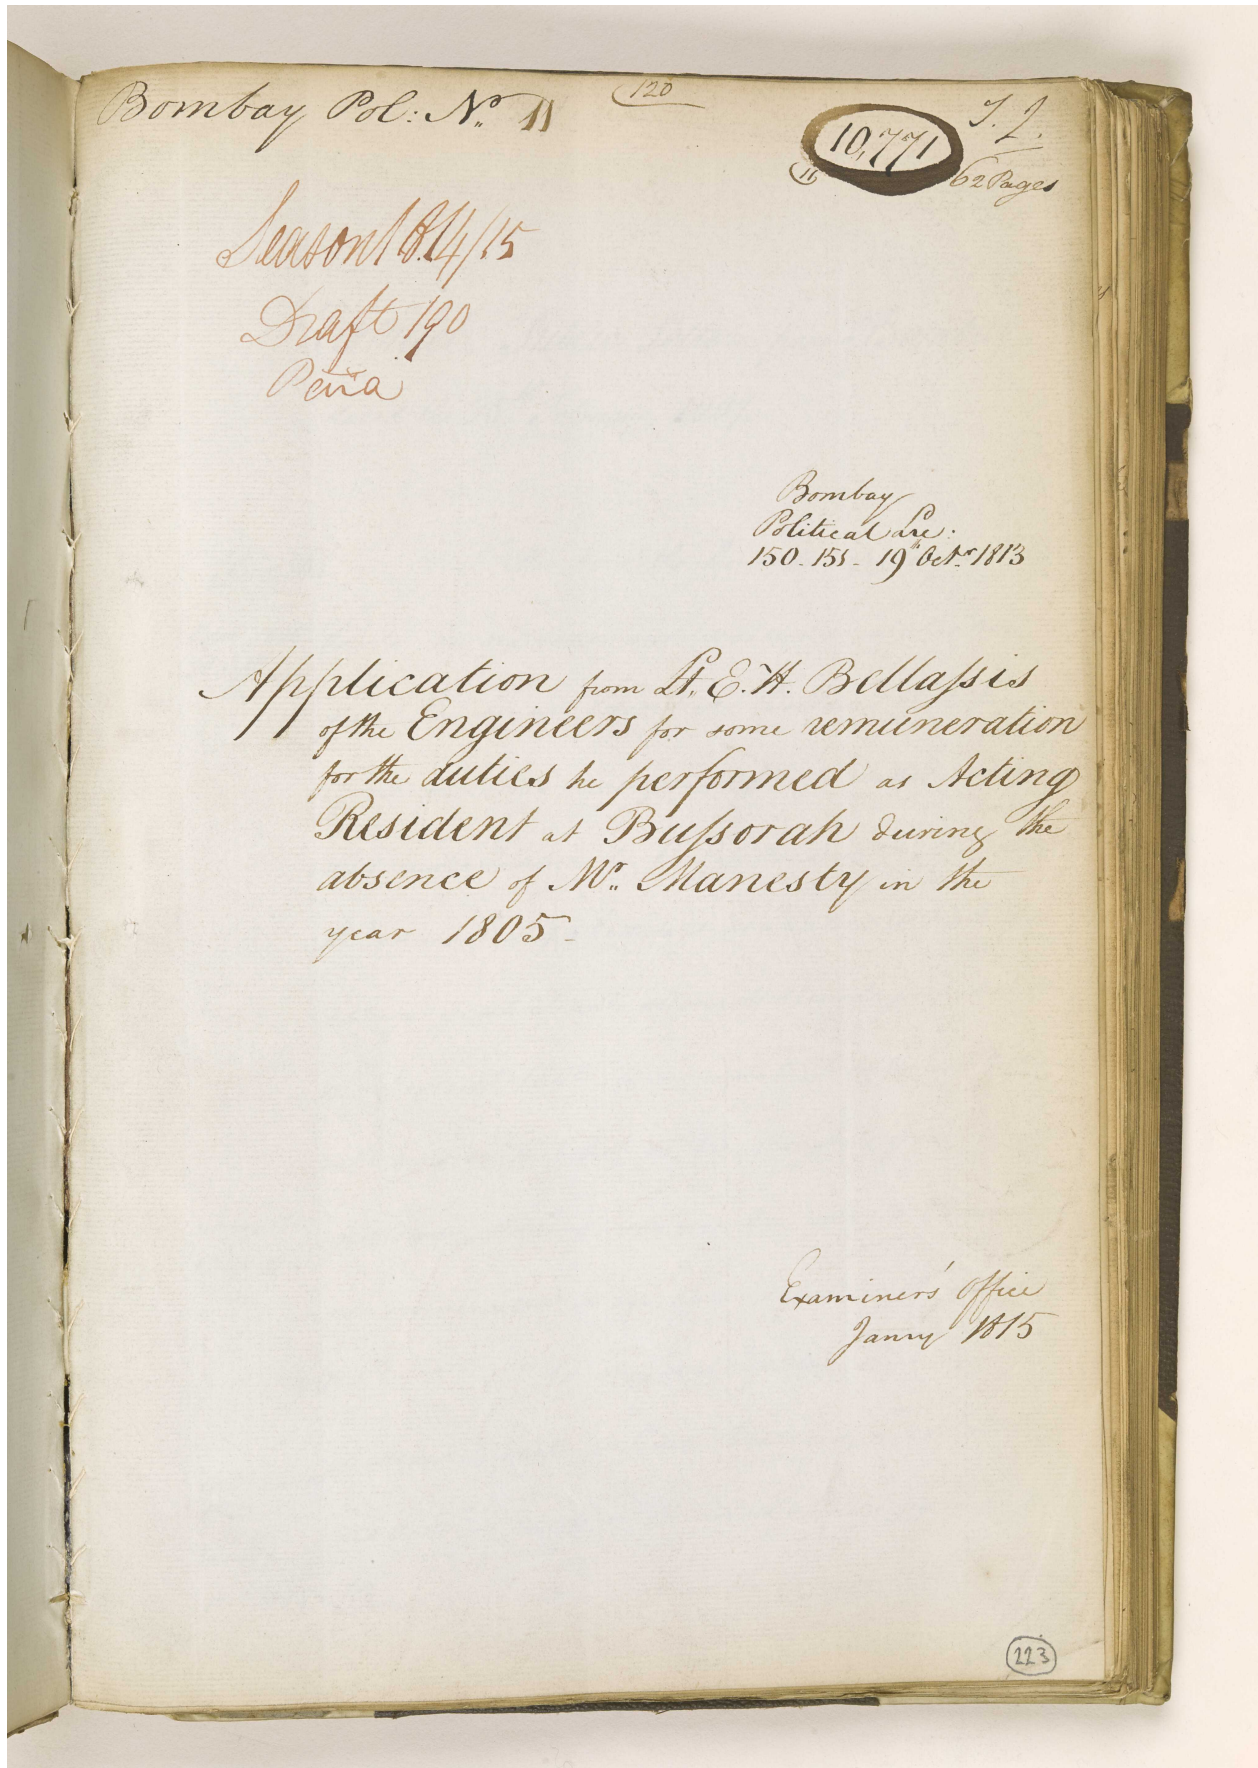 Bombay Pol: No. 11
120
10,771
J. J.
11
62 Pages
Season 1814/15
Draft 190
Bombay
Political
150. 151 - 19th Octr. 1813
Application from Lt. E. H. Bellaſsis
of the Engineers for some remuneration
for the duties he performed as Acting
Resident at Buſsorah during the
absence of Mr. Manesty in the
year 1805 -
Examiner's Office
Janry 1815
223